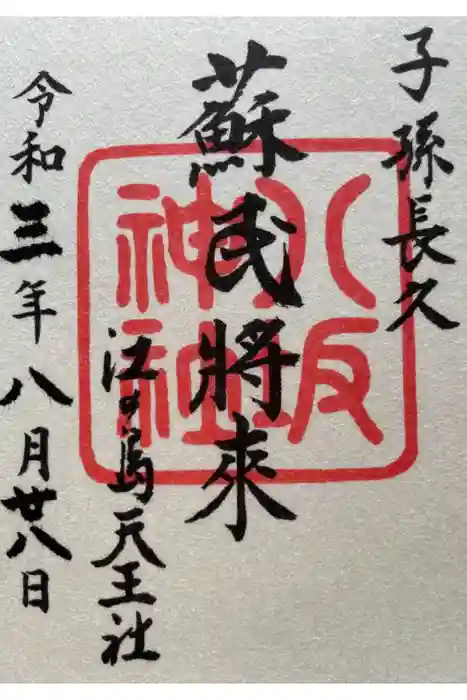 子孫長久
蘇民將來
江の島天王社
令和三年八月廿八日
八坂
神社